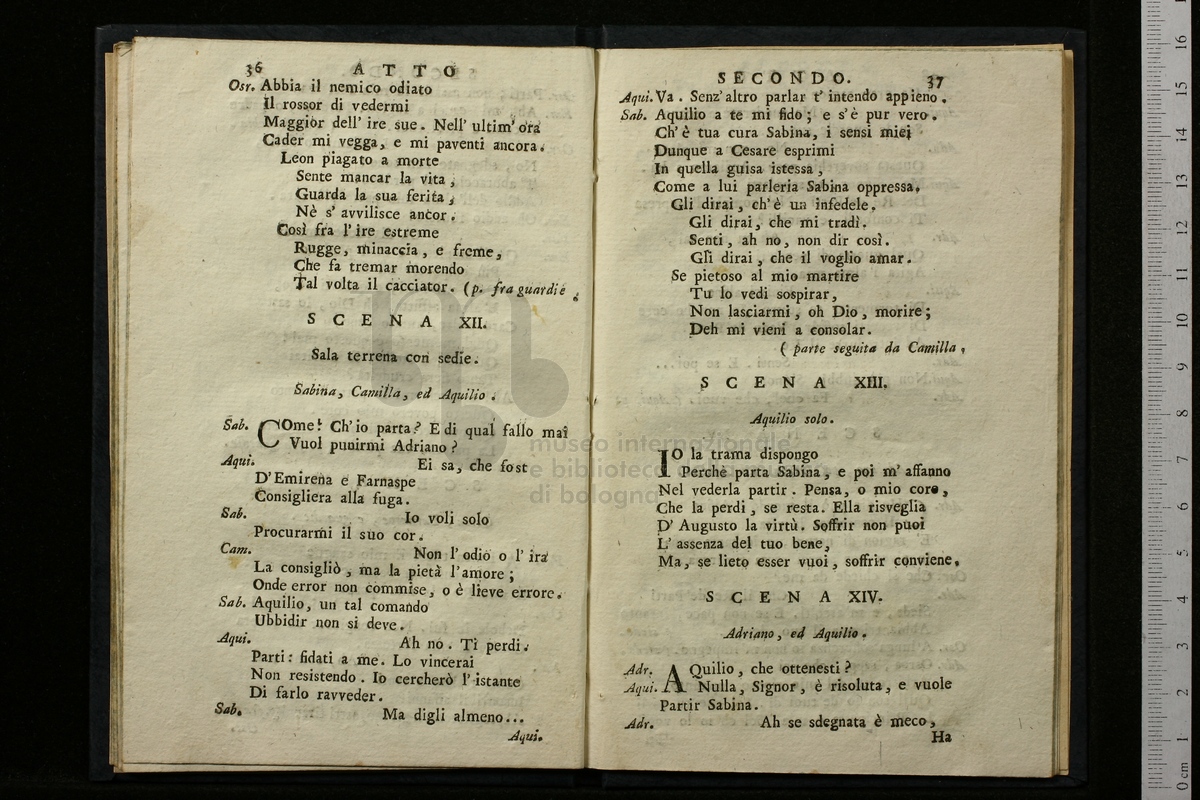 36 ATTO
Osr. Abbia il nemico odiato
Il rossor di vedermi
Maggior dell' ire sue. Nell' ultim' ora
Cader mi vegga, e mi paventi ancora.
Leon piagato a morte
Sente mancar la vita,
Guarda la sua ferita,
Nè s' avvilisce ancor.
Così fra l' ire estreme
Rugge, minaccia, e freme,
Che fa tremar morendo
Tal volta il cacciator. (p. fra guardie.
SCENA XII.
Sala terrena con sedie.
Sabina, Camilla, ed Aquilio.
Sab. COme! Ch' io parta? E di qual fallo mai
Vuol punirmi Adriano?
Aqui. Ei sa, che fost
D' Emirena e Farnaspe
Consigliera alla fuga.
Sab. Io voli solo
Procurarmi il suo cor.
Cam. Non l' odio o l' ira
La consigliò, ma la pietà l' amore;
Onde error non commise, o è lieve errore.
Sab. Aquilio, un tal comando
Ubbidir non si deve.
Aqui. Ah no. Ti perdi.
Parti: fidati a me. Lo vincerai
Non resistendo. Io cercherò l' istante
Di farlo ravveder.
Sab. Ma digli almeno...
Aqui.
SECONDO. 37
Aqui. Va. Senz' altro parlar t' intendo appieno.
Sab. Aquilio a te mi fido; e s' è pur vero.
Ch' è tua cura Sabina, i sensi miei
Dunque a Cesare esprimi
In quella guisa istessa,
Come a lui parleria Sabina oppressa.
Gli dirai, ch' è un infedele.
Gli dirai, che mi tradì.
Senti, ah no, non dir così.
Gli dirai, che il voglio amar.
Se pietoso al mio martire
Tu lo vedi sospirar,
Non lasciarmi, oh Dio, morire;
Deh mi vieni a consolar.
( parte seguita da Camilla,
SCENA XIII.
Aquilio solo.
IO la trama dispongo
Perchè parta Sabina, e poi m' affanno
Nel vederla partir. Pensa, o mio core,
Che la perdi, se resta. Ella risveglia
D' Augusto la virtù. Soffrir non puoi
L' assenza del tuo bene,
Ma, se lieto esser vuoi, soffrir conviene.
SCENA XIV.
Adriano, ed Aquilio.
Adr. AQuilio, che ottenesti?
Aqui. Nulla, Signor, è risoluta, e vuole
Partir Sabina.
Adr. Ah se sdegnata è meco,
Ha
museo internazionale
e biblioteca
di bologna
0 cm 1 2 3 4 5 6 7 8 9 10 11 12 13 14 15 16